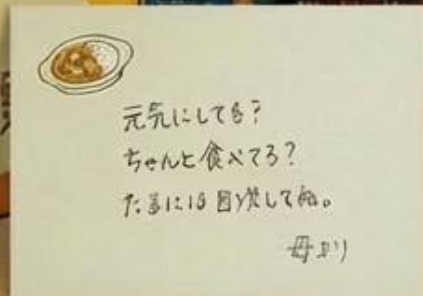 元気にしてる?
ちゃんと食べてる?
たまには自炊してね。
母より